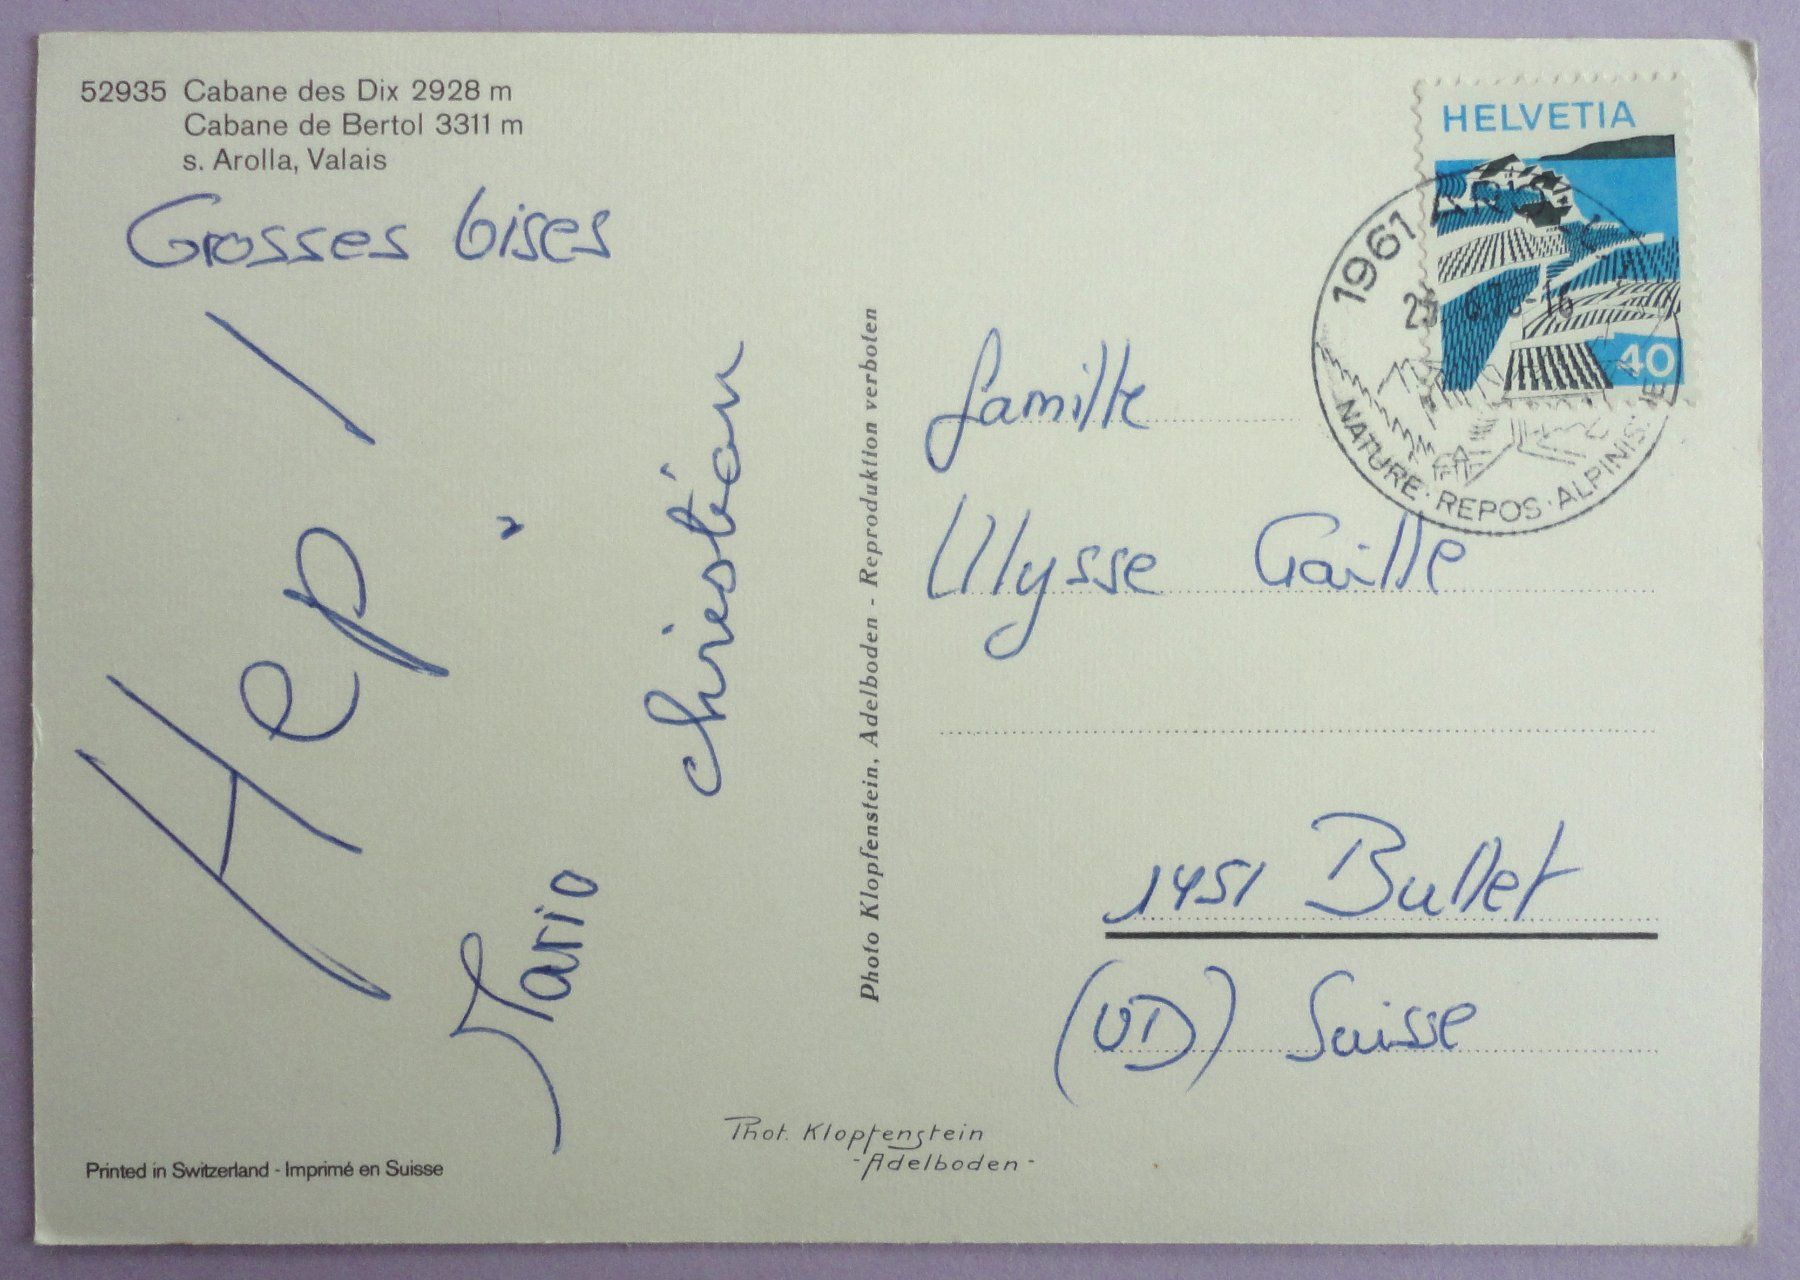 52935 Cabane des Dix 2928 m
Cabane de Bertol 3311 m
s. Arolla, Valais
Grosses bises
Hep !
Mario
christian
Photo Klopfenstein, Adelboden - Reproduktion verboten
HELVETIA
40
1961
NATURE · REPOS · ALPINIS
famille
Ulysse Gaille
1451 Bullet
(VD) Suisse
Phot. Klopfenstein
- Adelboden -
Printed in Switzerland - Imprimé en Suisse